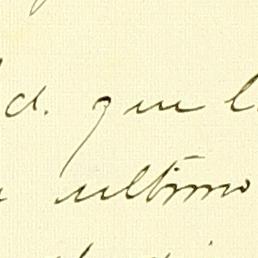 d. que l
ultimo